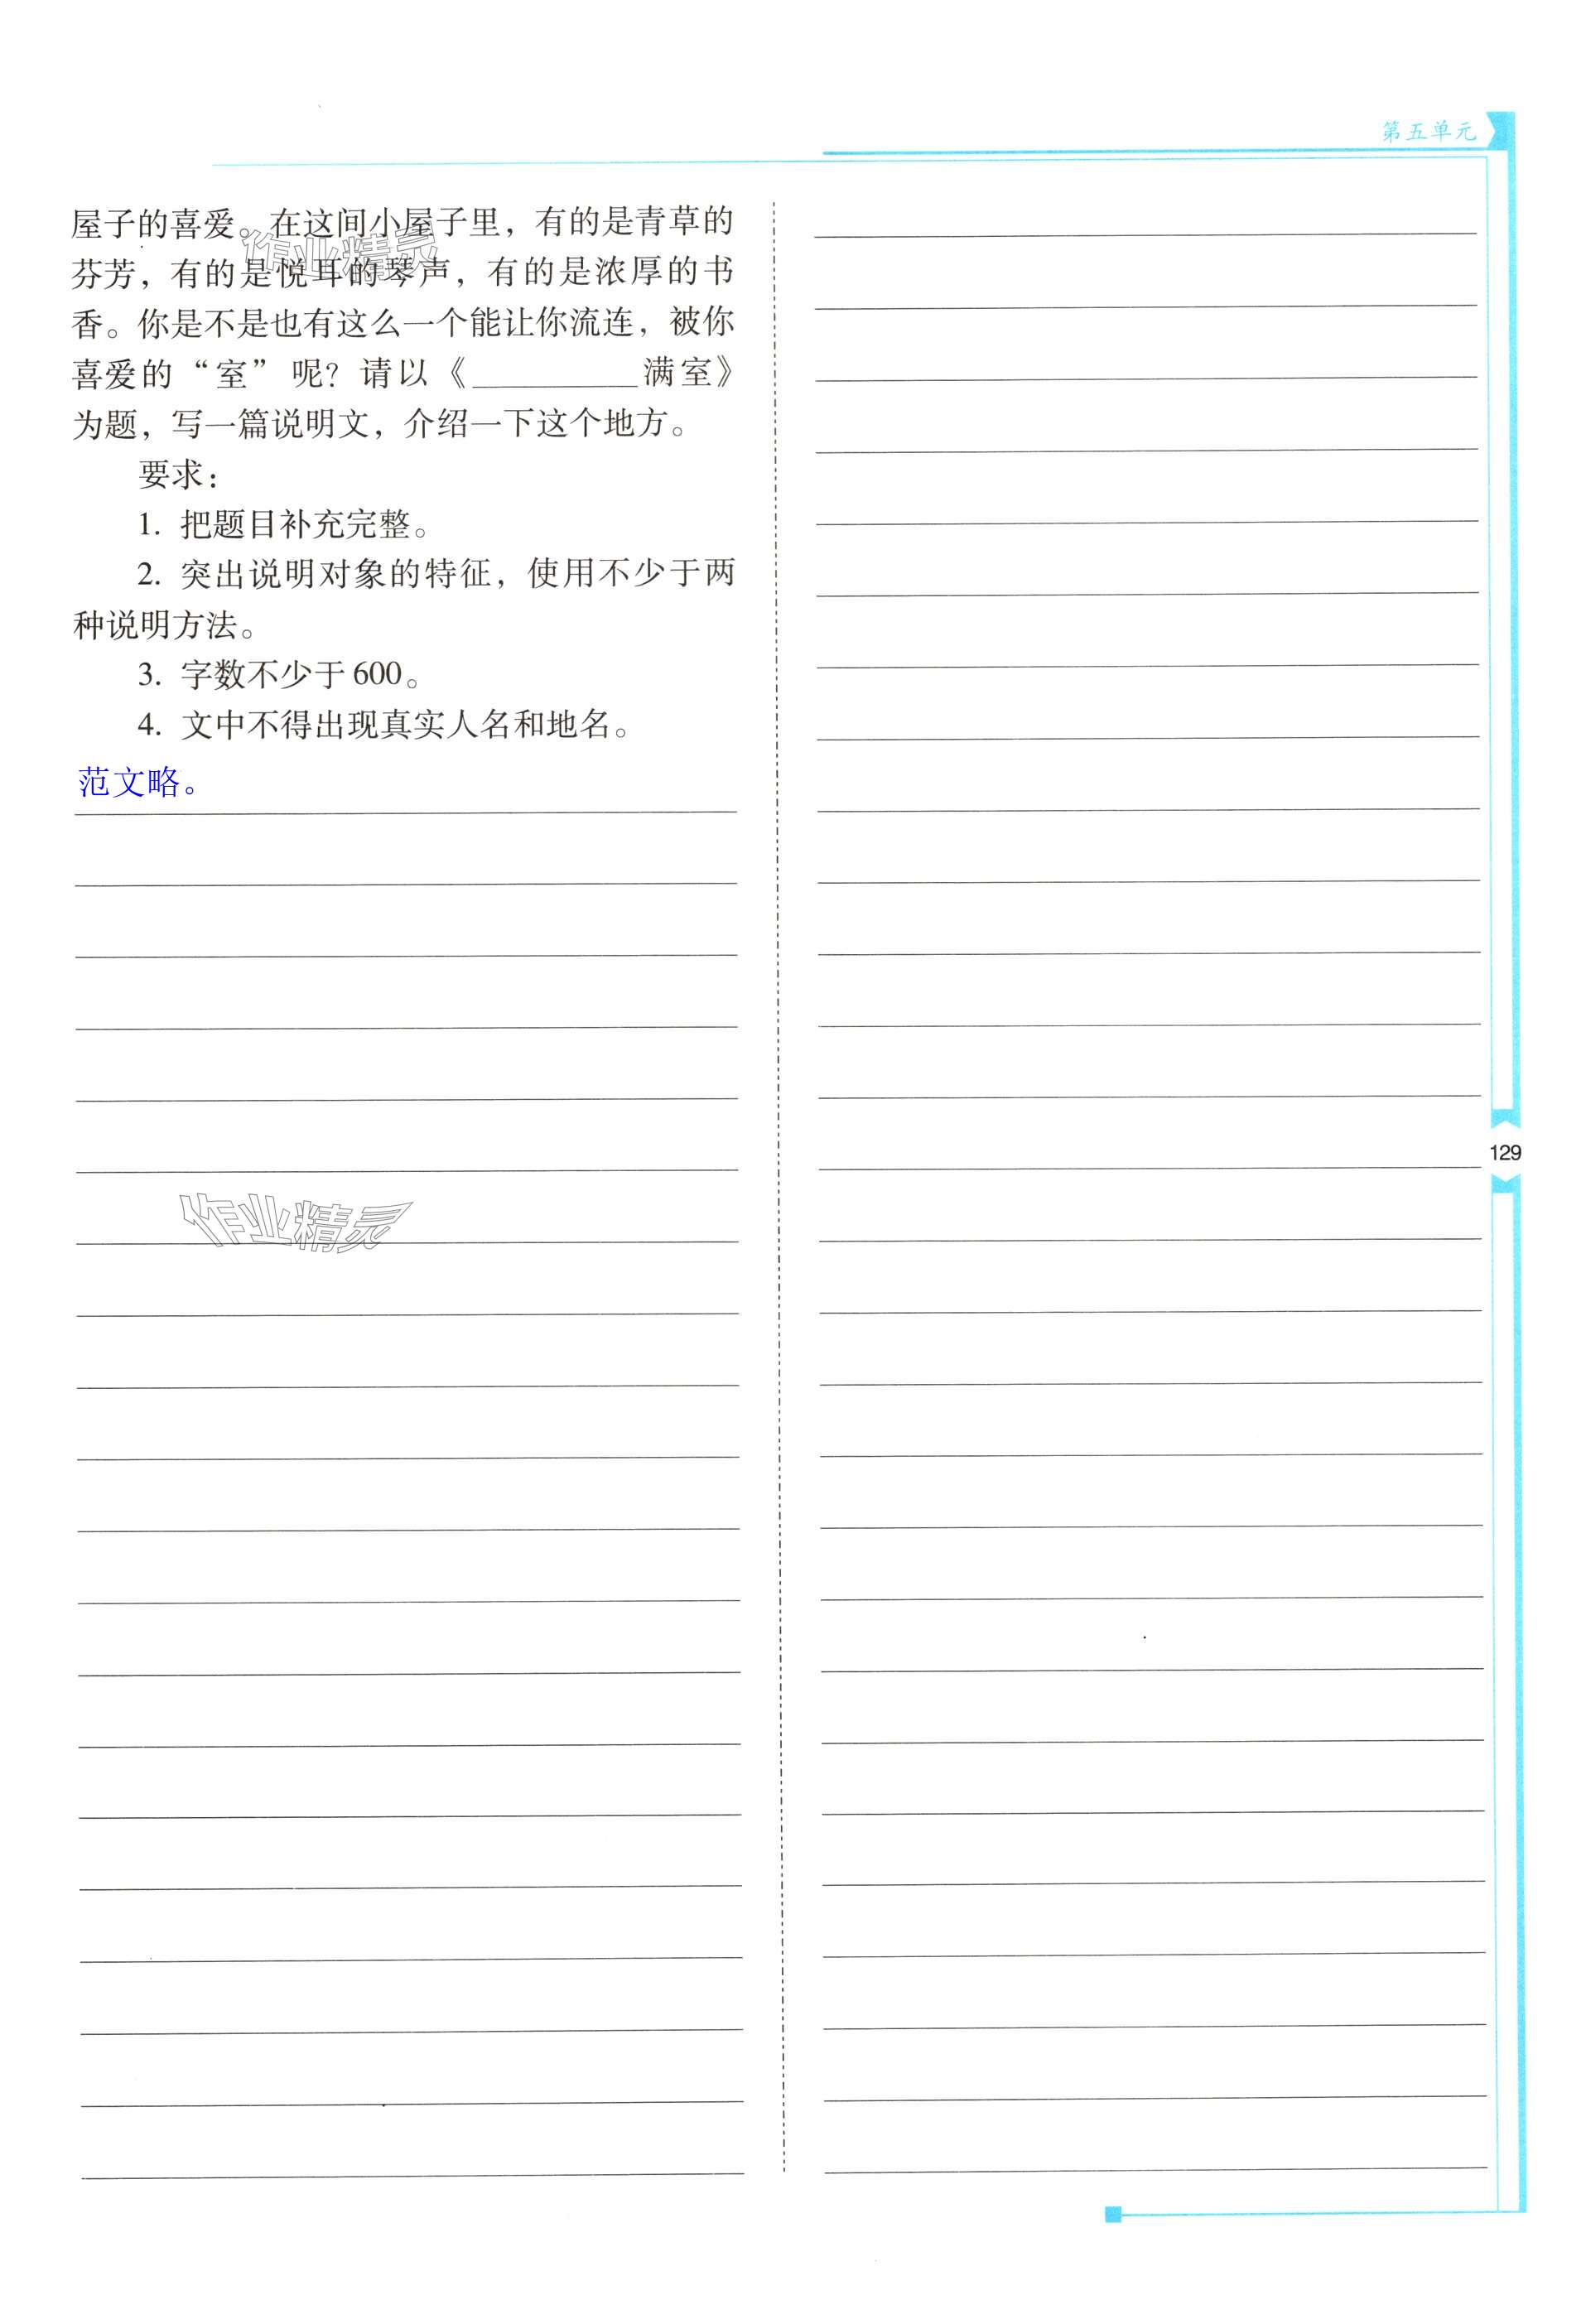 第五单元
屋子的喜爱。在这间小屋子里，有的是青草的
芬芳，有的是悦耳的琴声，有的是浓厚的书
香。你是不是也有这么一个能让你流连，被你
喜爱的“室”呢？请以《__________满室》
为题，写一篇说明文，介绍一下这个地方。
要求：
1. 把题目补充完整。
2. 突出说明对象的特征，使用不少于两
种说明方法。
3. 字数不少于600。
4. 文中不得出现真实人名和地名。
范文略。
作业精灵
作业精灵
129